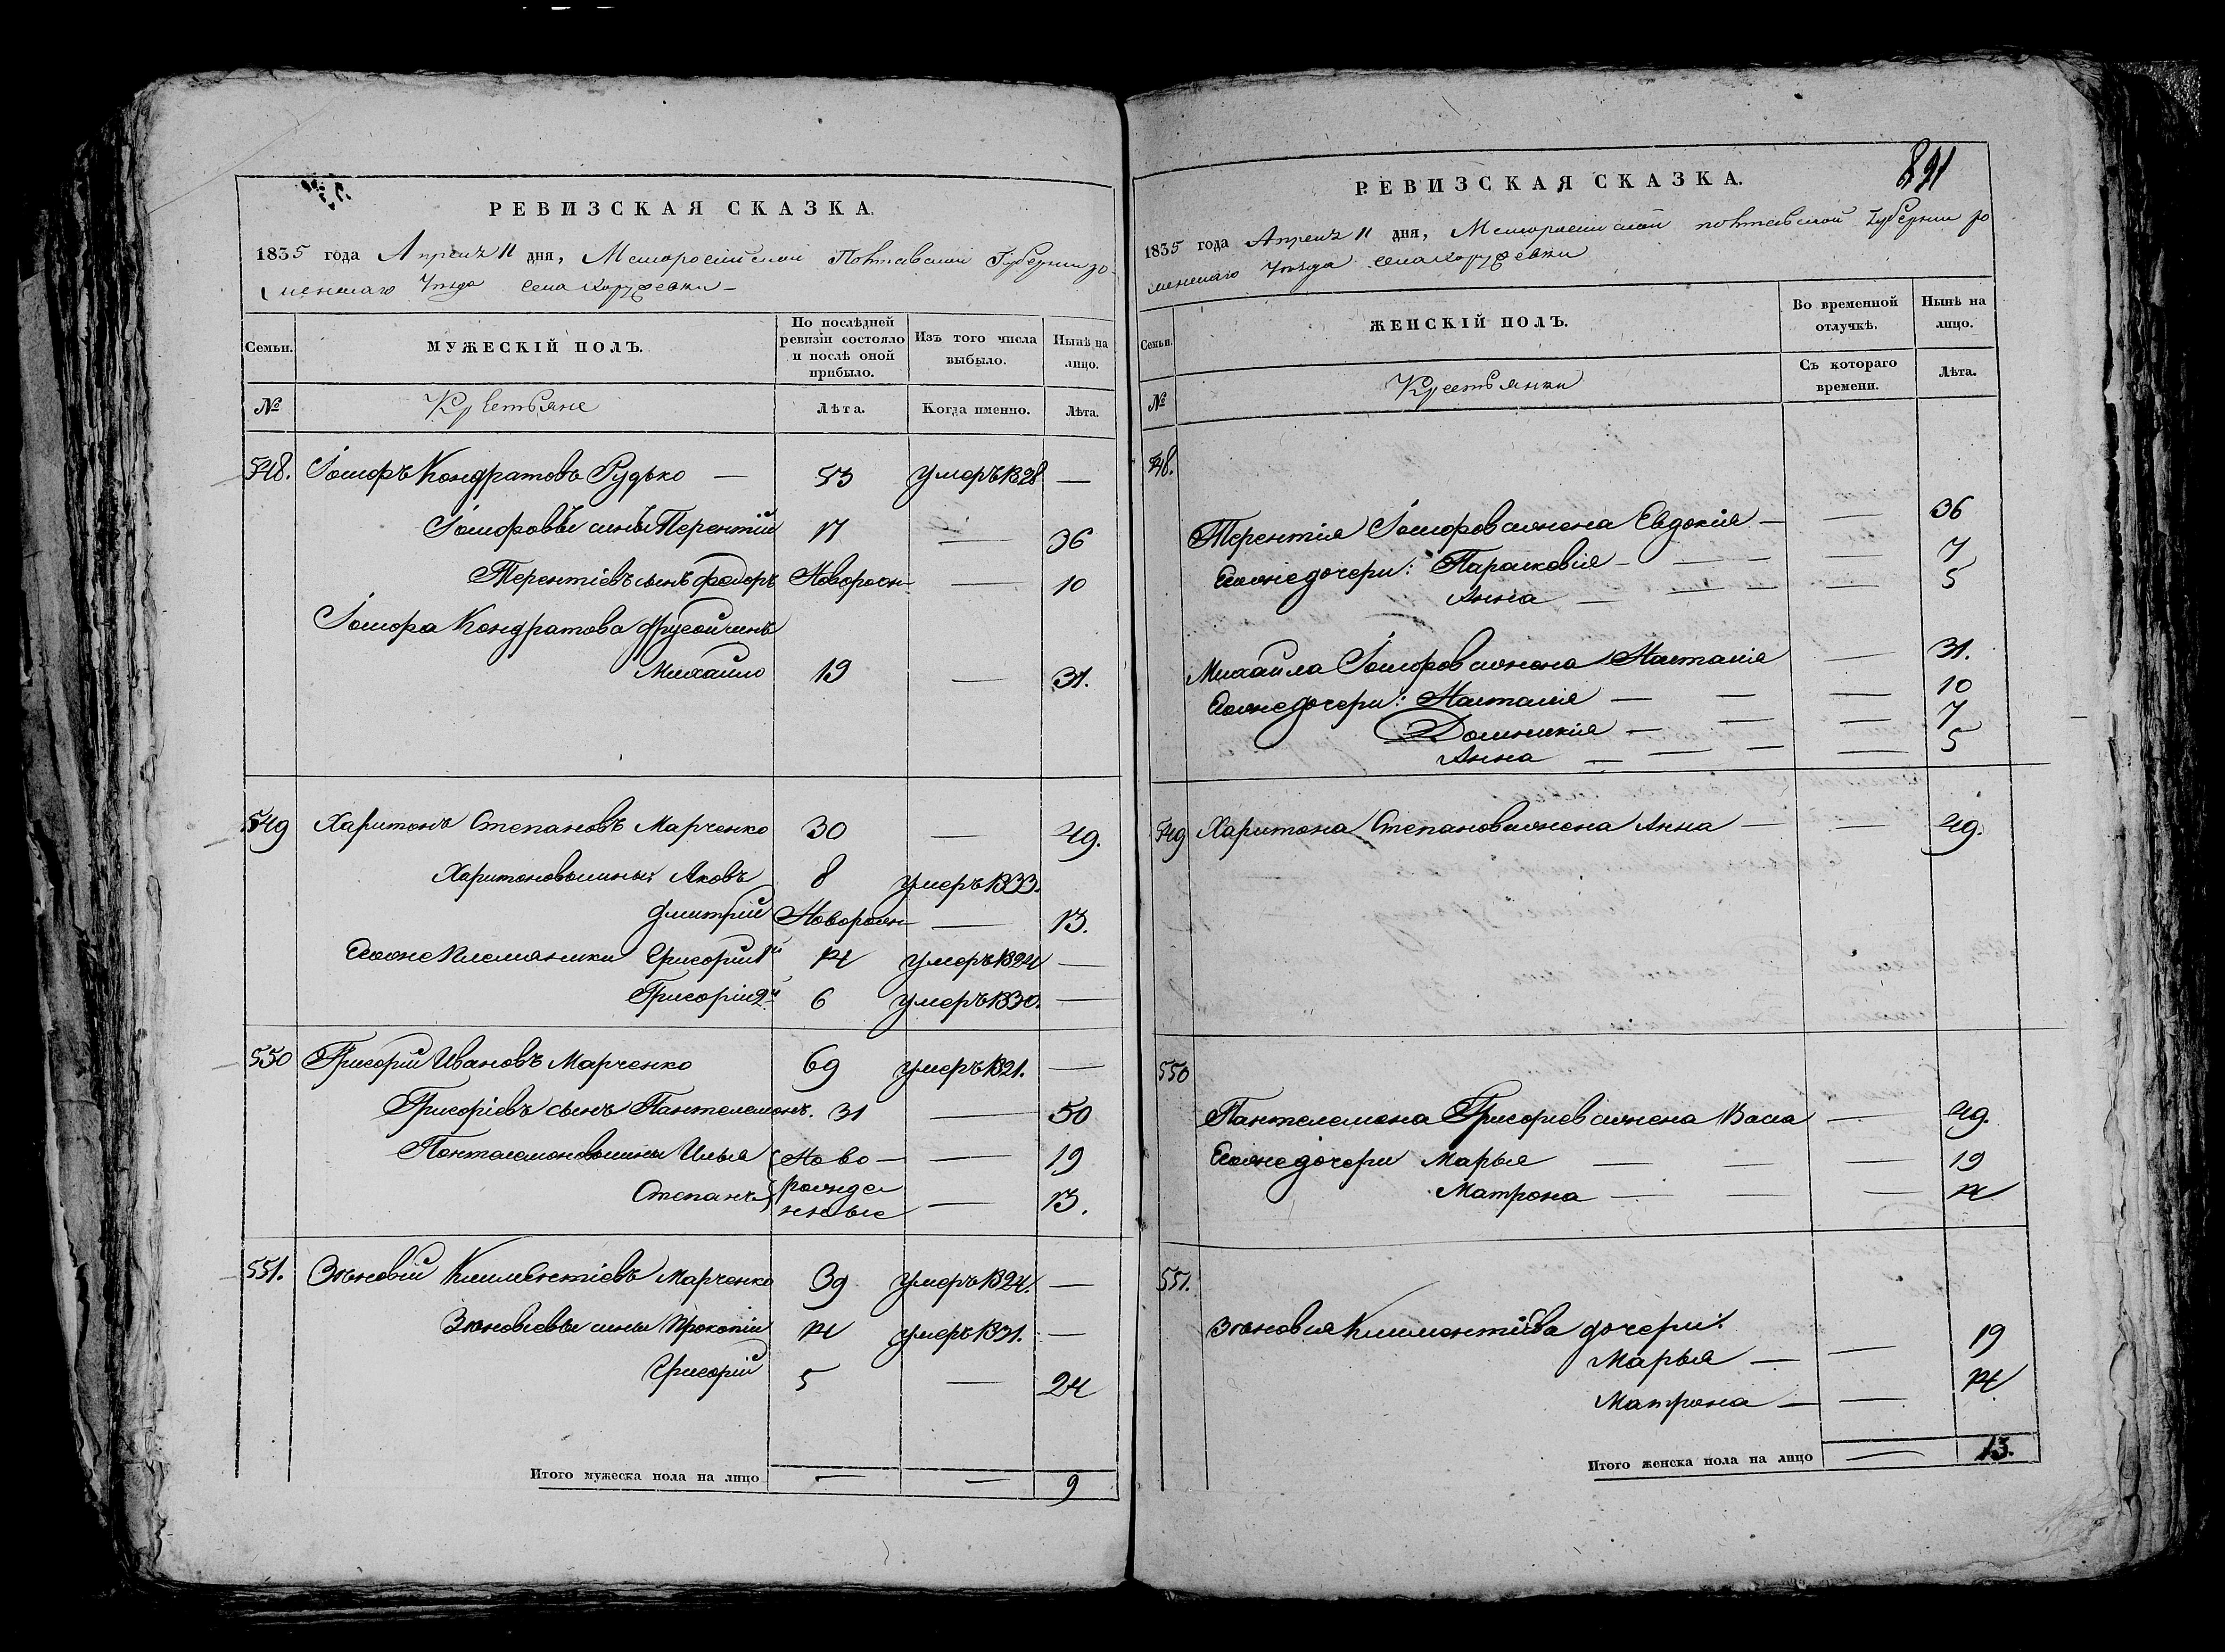 РЕВИЗСКАЯ СКАЗКА.
1835 года Апреля 11 дня, Малоросійской Полтавской Губерніи Ро-
менскаго Уѣзда села Коружевки
Семьи.
МУЖЕСКІЙ ПОЛЪ.
По послѣдней ревизіи состояло и послѣ оной прибыло.
Изъ того числа выбыло.
Нынѣ на лицо.
№ Крестьяне Лѣта. Когда именно. Лѣта.
548. Іосифъ Кондратовъ Рудько — 53 умеръ 1828 —
Іосифовы сыны Терентій 17 — 36
Терентіевъ сынъ Федоръ Новорожд — 10
Іосифа Кондратова другой сынъ
Михайло 19 — 31.
549 Харитонъ Степановъ Марченко 30 — 49.
Харитоновы сыны: Яковъ 8 умеръ 1833.
Дмитрій Новорожд — 13.
Егоже племяники Григорій 1й 14 умеръ 1824 —
Григорій 2й 6 умеръ 1830. —
550 Григорій Ивановъ Марченко 69 умеръ 1821. —
Григоріевъ сынъ Пантелемонъ. 31 — 50
Пантелемоновы сыны Илья Ново — — 19
Степанъ рожде нные — 13.
551. Зѣновій Климентіевъ Марченко 39 умеръ 1824. —
Зѣновіевы сыны Прокопій 14 умеръ 1831. —
Григорій 5 — 24
Итого мужеска пола на лицо — — 9
891
РЕВИЗСКАЯ СКАЗКА.
1835 года Апреля 11 дня, Малоросійской Полтавской Губерніи Ро
менскаго Уѣзда села Коружевки
Семьи.
ЖЕНСКІЙ ПОЛЪ.
Во временной отлучкѣ.
Нынѣ на лицо.
№ Крестьянки
Съ котораго времени.
Лѣта.
548.
Терентія Іосифова жена Евдокія — — 36
Егоже дочери: Парасковія — — — 7
Анна — — — — 5
Михайла Іосифова жена Настасія — 31.
Егоже дочери: Настасія — — — 10
Домникія — — — 7
Анна — — — — 5
549 Харитона Степанова жена Анна — — 49.
550
Пантелемона Григорьева жена Васа — 49.
Егоже дочери Марья — — — 19
Матрона — — — 14
551.
Зѣновія Климентіева дочери:
Марья — — 19
Матрона — — 14.
Итого женска пола на лицо — 13.